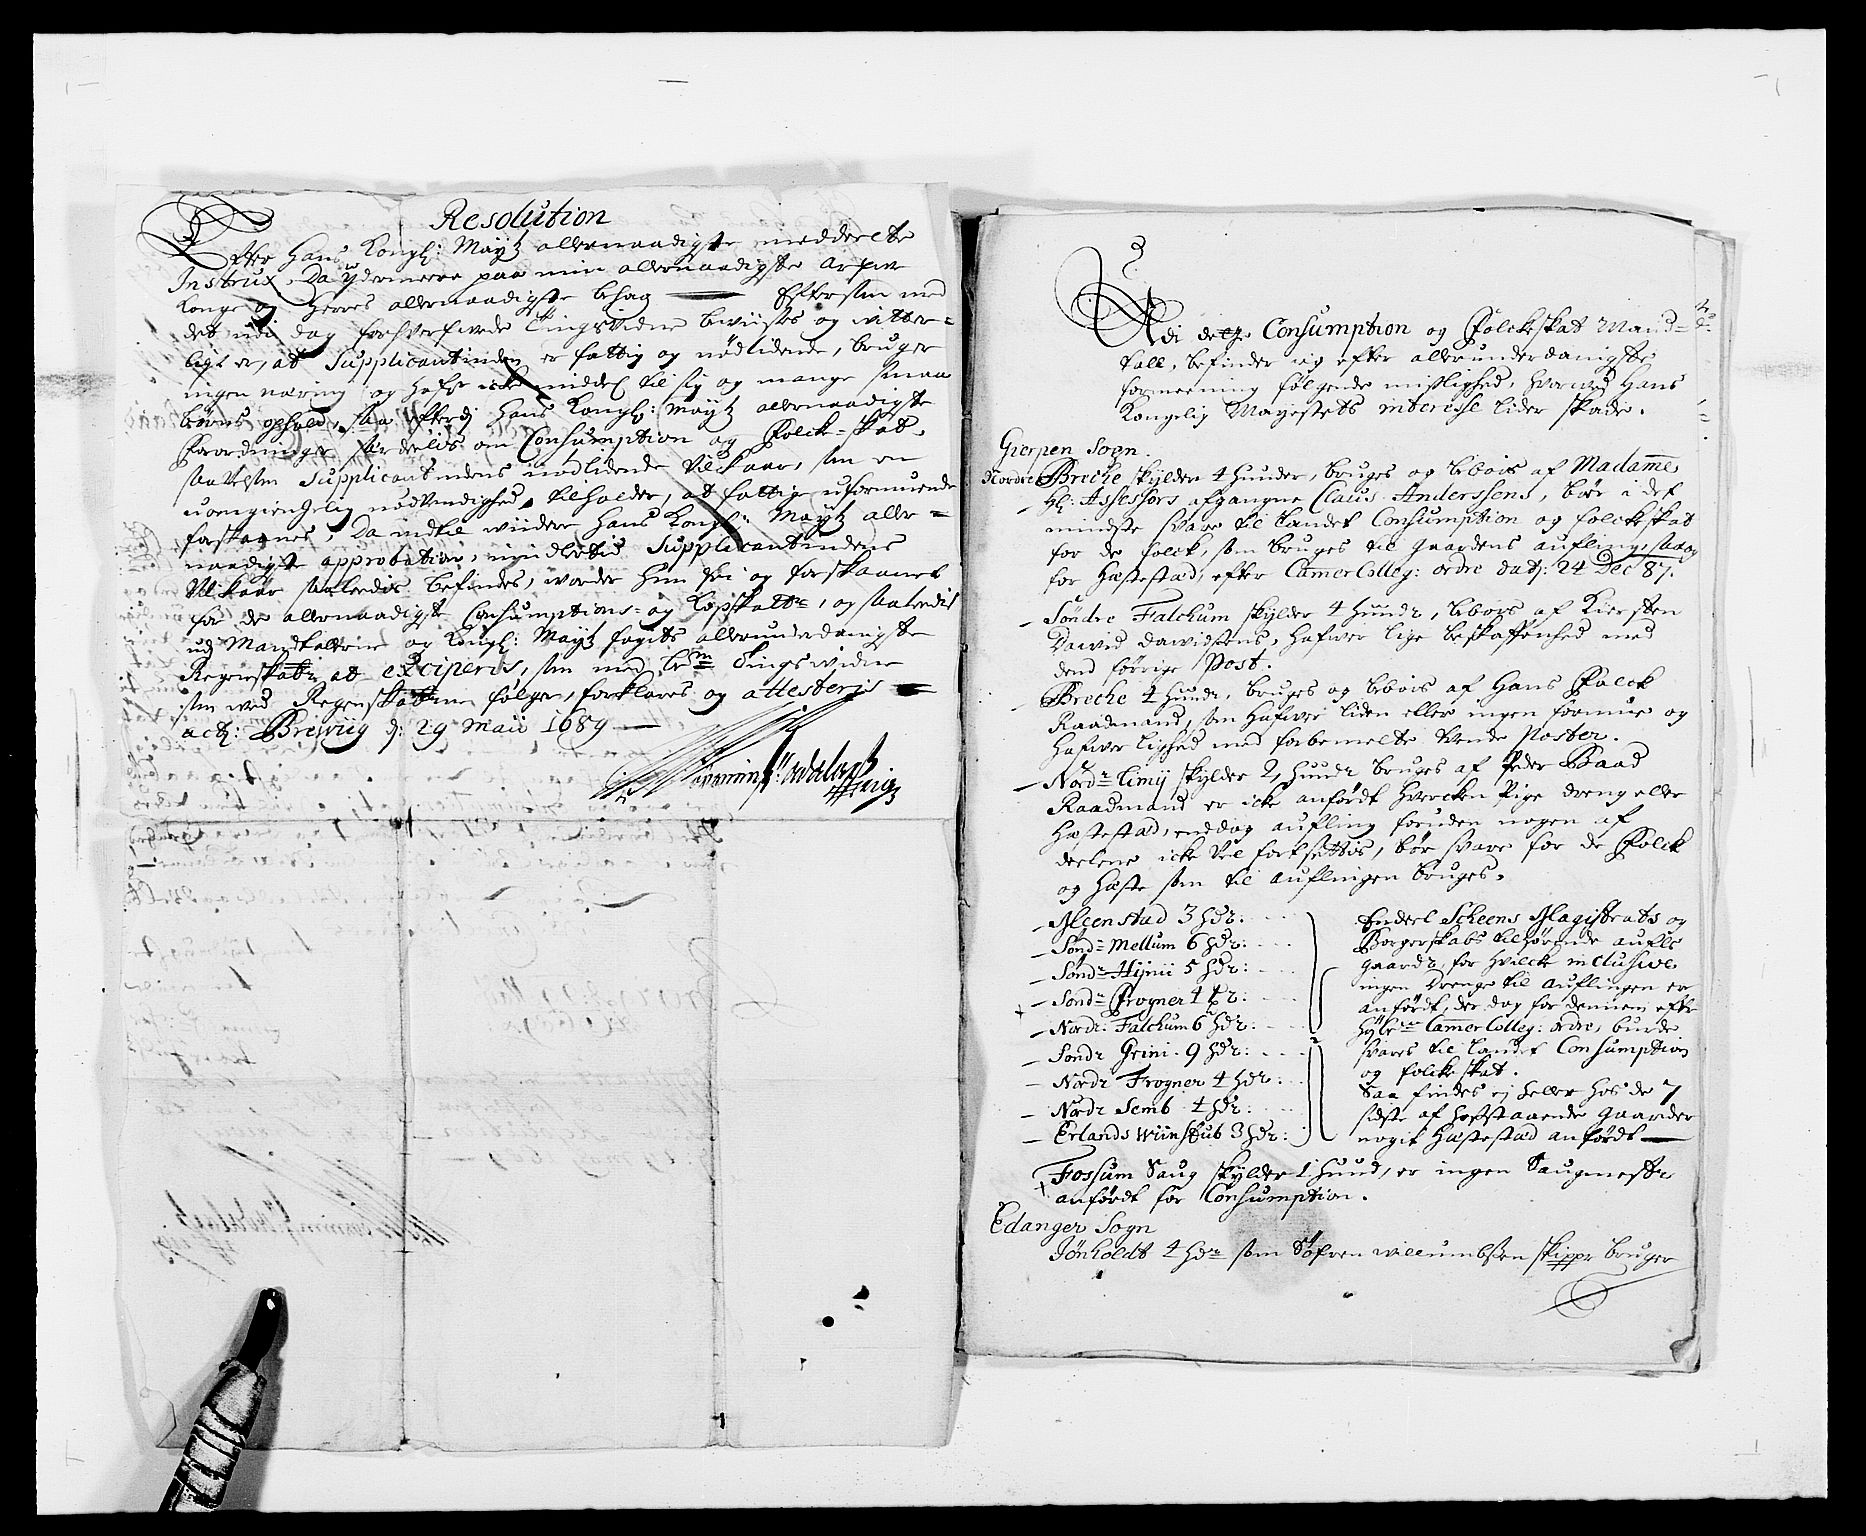 Resolution
Efter Hans Kongl: Maytz allernaadigste meddeelte
Instrux, Da ydermeere paa min allernaadigste arfwe
Konge og Herres allernaadigste behag — Eftersom med
det udi dag forhverfwede Tingsvidne bewiises og vitter=
ligt er, at Supplicantinden er fattig og nødlidende, bruger
ingen næring og hafr icke middel til sig og mange smaa
børns ophold, saa efterdj Hans Kongl: Maytz allernaadigste
forordninger særdeelis om Consumption og Folck=skat,
saavelsom Supplicantindens nødlidende vilkaar, som en
uomgiengelig nødvendighed tilholder, at fattige uformuende
forskaanes, Da indtil wiidere Hans Kongl: Maytz aller=
naadigste approbation, imidlertid Supplicantindens
Vilkaar saaledis befindes, worder hun frj og forskaanet
for de allernaadigste Consumptions= og Kopskatter, og saaledis
udj Mandtallerne og Kongl: Maytz fogits allerunderdanigste
Regenskaber at exciperis, som med bem: Tingswidne
som wed Regenskabet følger, forklares og attesteris —
act: Brewiig d: 29 Maii 1689 —
Adi delge Consumption og Folckeskat Mand=
tall, befinder ieg efter allerunderdanigste
formeening følgende mislighed, hvorved Hans
Kongelig Mayestets interesse lider skade.
Gierpen Sogn.
Nordre Breche skylder 4 hunder, bruges og beboes af Madamme
Hl: Assessors afgangne Claus Anderssens, bør i det
mindste svare til Landet Consumption og folckeskat
for de folck, som bruges til gaardens aufling, saa og
for Hæstestad, efter CammerColleg: ordre dat: 24 Dec 87.
Søndre Falchum skylder 4 hundr, beboes af Kiersten
Dawid Dawidsens, hafwer lige beskaffenhed med
dend førrige Post.
Breche 4 hundr, bruges og beboes af Hans Falck
Raadmand, som hafwer liden eller ingen formue og
hafwer lighed med forbemelte tvende Poster.
Nordr Limij skylder 2 hundr bruges af Peder Baad
Raadmand er icke anførdt hvercken Pige dreng eller
Hæstestad, enddog aufling foruden nogen af
deelene icke vel fortsettes, bør svare for de Folck
og Hæste som til auflingen bruges.
Gleenstad 3 hdr:
Sønd: Mellum 6 hdr:
Søndr Hijnii 5 hdr:
Sønd: Frogner 4 hdr:
Nordr: Falchum 6 hdr:
Søndr Grini 9 hdr:
Nordr Frogner 4 hdr:
Nordr Semb 4 hdr:
Erlands Wiinstub 3 hdr:
Endeel Scheens Magistrats og
Borgerskabs tilhørende aufls
gaarde, for hvilcke inclusive
ingen Drenge til auflingen er
anførdt, der dog for dennem efter
høyber CammerColleg: ordre, burde
svares til Landet Consumption
og folckeskat.
Saa findes ej heller hos de 7
sidste af hosstaaende gaarder
nogit Hæstestad anførdt —
Fossum Saug skylder 1 hund, er ingen Saugmester
anførdt for Consumption.
Edanger Sogn
Jønholdt 4 hdr som Søfren Willumbsen skippr bruger